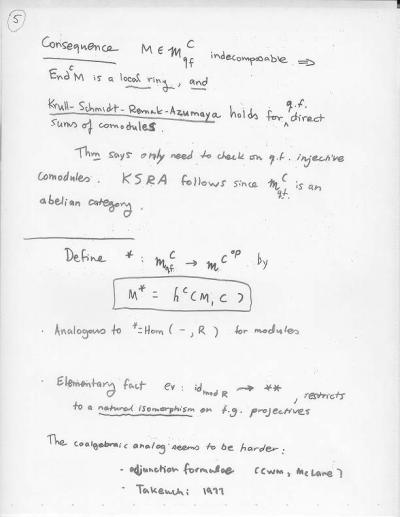 5
Consequence M ∈ m^C_qf indecomposable ⇒
End^C M is a local ring, and
Krull-Schmidt-Remak-Azumaya holds for q.f. direct
sums of comodules.
Thm says only need to check on q.f. injective
comodules. KSRA follows since m^C_q.f. is an
abelian category.
Define * : m^C_qf → m^C^op by
M* = h^C(M, C)
· Analogous to * = Hom(-, R) for modules
· Elementary fact ev: id_mod R → **, restricts
to a natural isomorphism on f.g. projectives
The coalgebraic analog seems to be harder:
· adjunction formulae (CWM, McLane)
· Takeuchi 1977